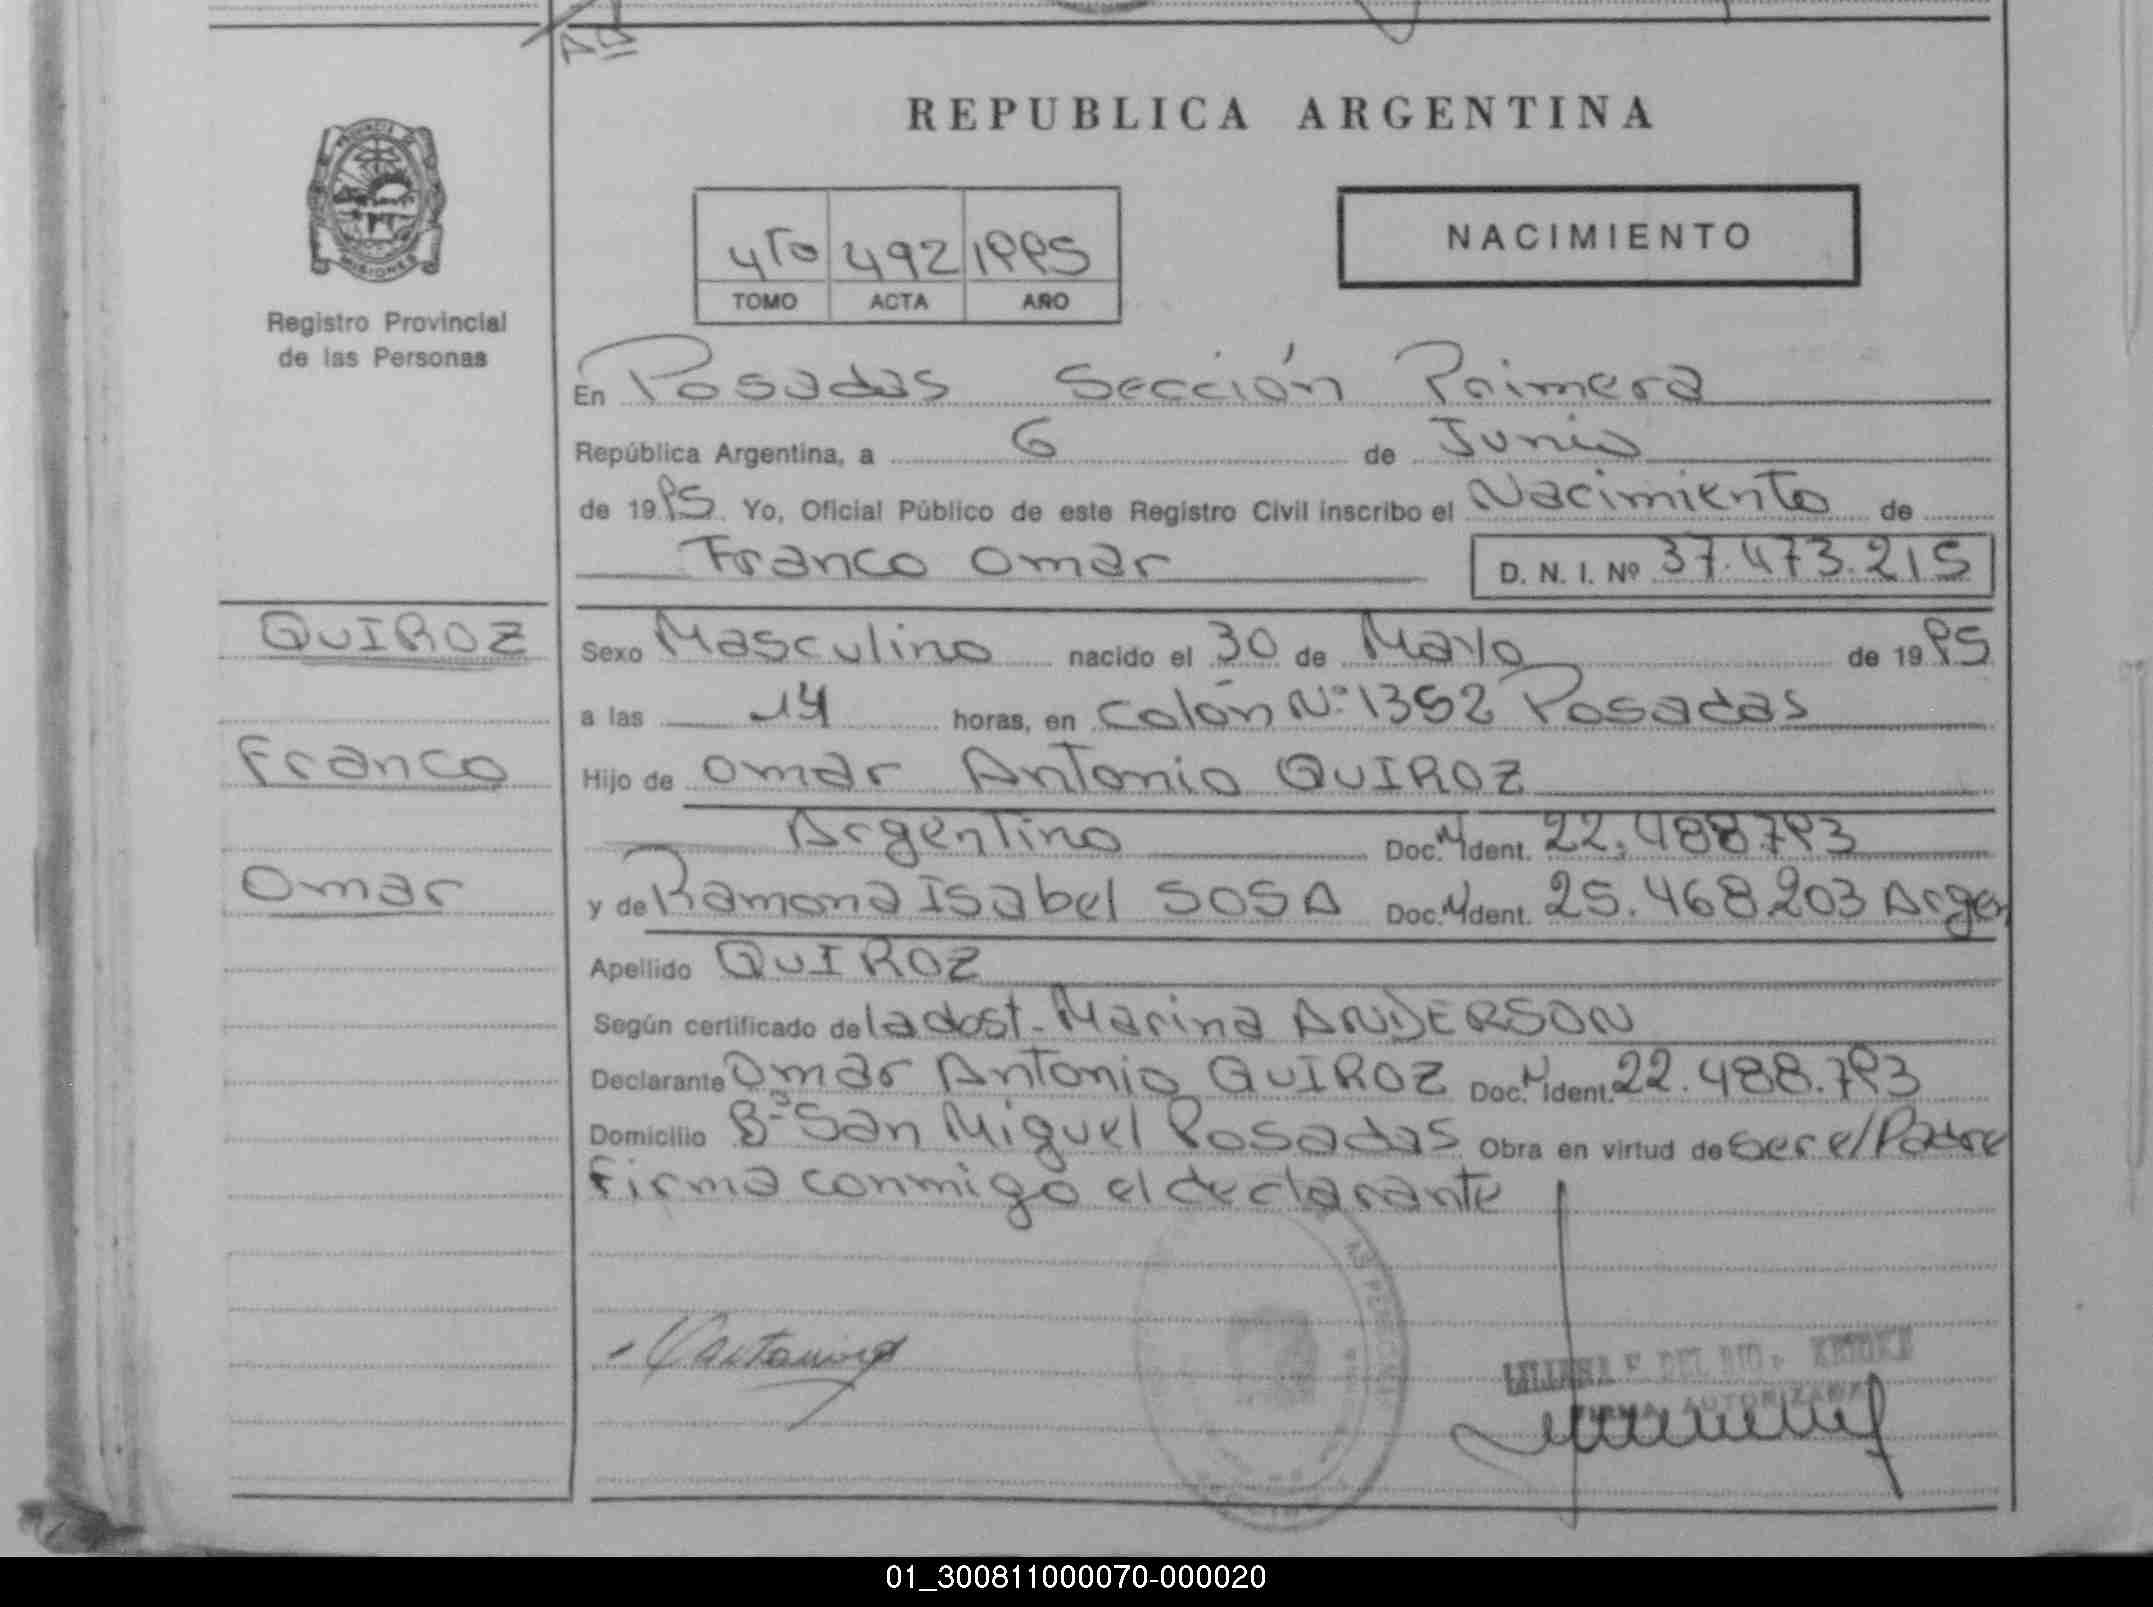 REPUBLICA ARGENTINA
PROVINCIA DE
MISIONES
Registro Provincial
de las Personas
4to 492 1995
TOMO ACTA AÑO
NACIMIENTO
En Posadas Sección Primera
República Argentina, a 6 de Junio
de 1995 Yo, Oficial Público de este Registro Civil inscribo el Nacimiento de
Franco Omar D. N. I. Nº 37.473.215
QUIROZ
Franco
Omar
Sexo Masculino nacido el 30 de Mayo de 1995
a las 14 horas, en Colón Nº 1352 Posadas
Hijo de Omar Antonio QUIROZ
Argentino Doc. Ident. 22.488.793
y de Ramona Isabel SOSA Doc. Ident. 25.468.203 Argen
Apellido QUIROZ
Según certificado de la Obst. Marina ANDERSON
Declarante Omar Antonio QUIROZ Doc. Ident. 22.488.793
Domicilio Bº San Miguel Posadas Obra en virtud de ser el Padre
firma conmigo el declarante
AS PERSONAS
LILIANA DEL
AUTORIZADA
01_300811000070-000020